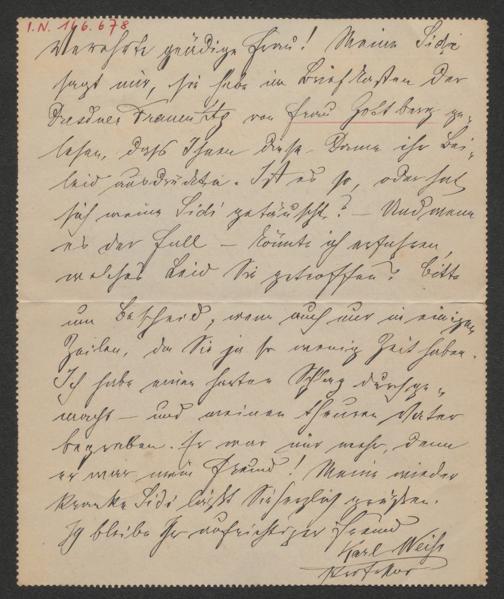 I.N. 166.678
Verehrte gnädige Frau! Meine Sidi
sagt mir, sie habe im Briefkasten der
Dresdner Frauenztg von Frau Goldberg ge-
lesen, daß Ihnen diese Dame ihr Bei-
leid ausdrückte. Ist es so, oder hat
sich meine Sidi getäuscht? – Und wenn
es der Fall – könnte ich erfahren,
welches Leid Sie getroffen? Bitte
um Bescheid, wenn auch nur in einigen
Zeilen, da Sie ja so wenig Zeit haben.
Ich habe einen harten Schlag durchge-
macht – und meinen theuren Vater
begraben. Er war mir mehr, denn
er war mein Freund! Meine wieder
kranke Sidi läßt Sie herzlich grüßen.
Ich bleibe Ihr aufrichtiger Freund
Karl Weiß
Professor